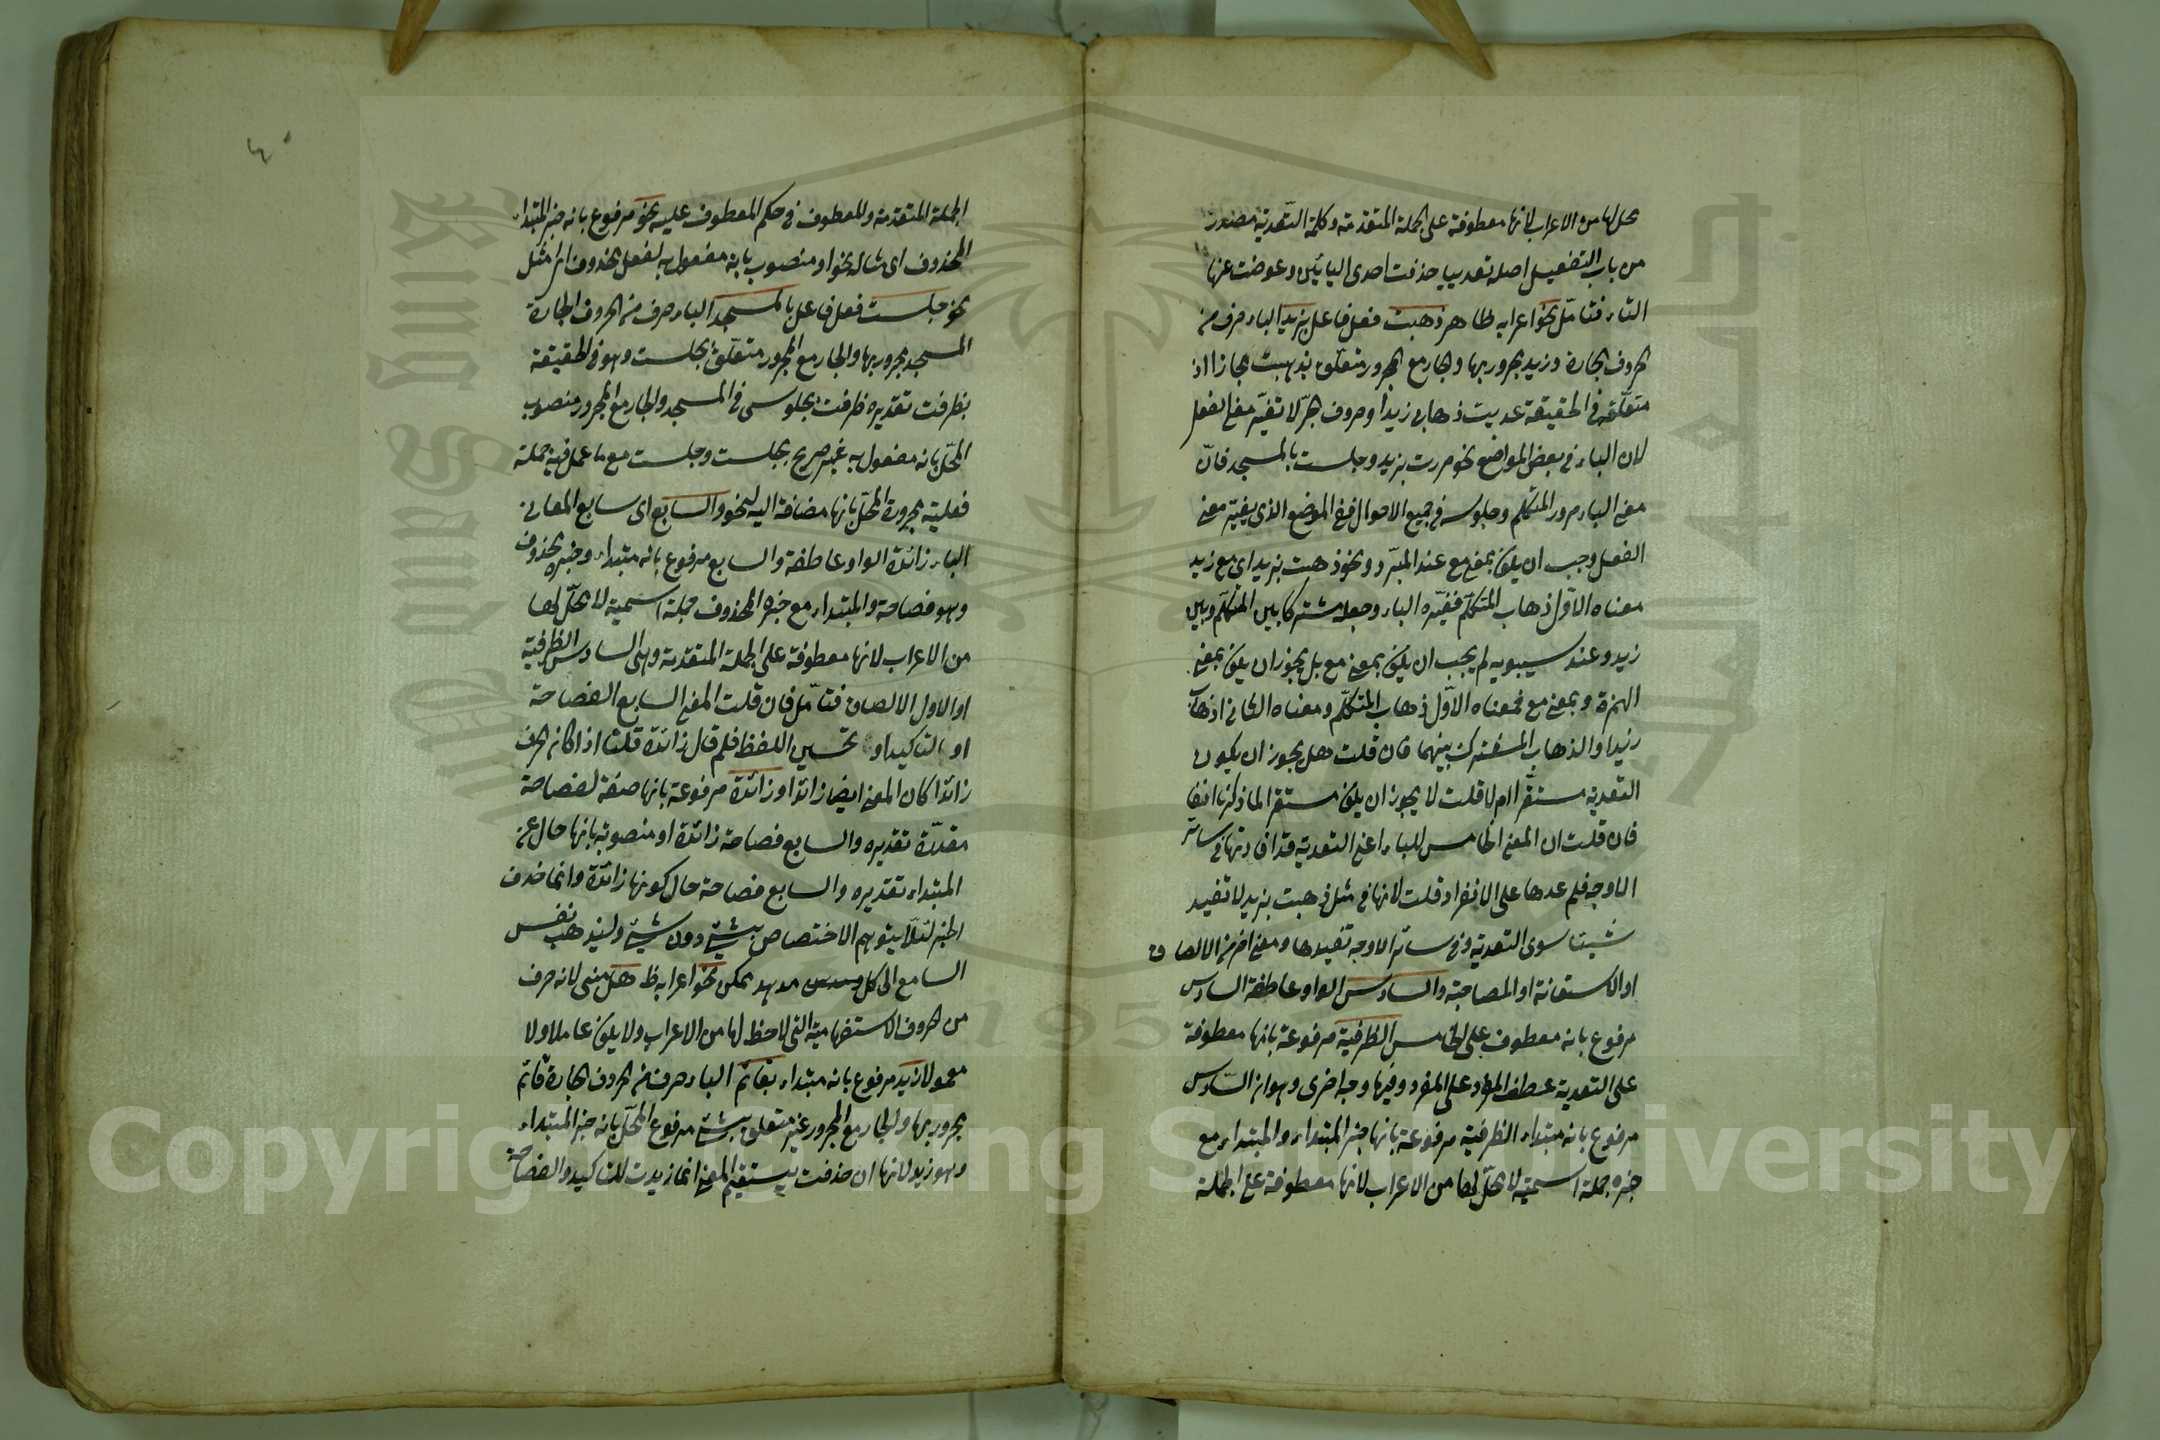 محل لها من الاعراب لانها معطوفة على الجملة المتقدمة وكلمة التعدية مصدر
من باب التفعيل اصله تعدييا حذفت احدى اليائين وعوضت عنها
التاء فتامّل نحو اعرابه ظاهر ذهبت فعل فاعل بزيد الباء حرف من
الحروف الجارة وزيد مجرور بها والجار مع المجرور متعلق بذهبت مجازا اذ
متعلقه فى الحقيقة عديت ذهابى زيدا وحروف الجرّ لا تغيّر معنى الفعل
لان الباء فى بعض المواضع نحو مررت بزيد وجلست بالمسجد فانّ
معنى الباء مرور المتكلم وجلوسه فى جميع الاحوال ففى الموضع الذى يغيّر معنى
الفعل وجب ان يكون بمعنى مع عند المبرّد ونحو ذهبت بزيد اى مع زيد
معناه الاوّل ذهاب المتكلّم فغيّره الباء وجعله مشتركا بين المتكلّم وبين
زيد وعند سيبويه لم يجب ان يكون بمعنى مع بل يجوز ان يكون بمعنى
الهمزة وبمعنى مع فمعناه الاوّل ذهاب المتكلّم ومعناه الثانى اذهاب
زيدا والذهاب المشترك بينهما فان قلت هل يجوز ان يكون
التعدية مستقرا ام لا قلت لا يجوز ان يكون مستقر لما ذكرنا انفا
فان قلت ان المعنى الخامس للباء اعنى التعدية قد افادتها فى سائر
الاوجه فلم عدها على الانفراد قلت لانها فى مثل ذهبت بزيد لا تفيد
شيئا سوى التعدية وفى سائر الاوجه تفيدها ومعنى اخر من الالصاق
او الاستعانة او المصاحبة والسادس الواو عاطفة السادس
مرفوع بانه معطوف على الخامس الظرفية مرفوعة بانها معطوفة
على التعدية عطف المفرد على المفرد وفيها وجه اخرى وهو ان السّادس
مرفوع بانه مبتداء الظرفية مرفوعة بانها خبر المبتداء والمبتداء مع
خبره جملة اسمية لا محلّ لها من الاعراب لانها معطوفة على الجملة
٤٠
الجملة المتقدمة وللمعطوف فى حكم المعطوف عليه نحو مرفوع بانه خبر المبتداء
المحذوف اى مثاله نحو او منصوب بانه مفعول به لفعل محذوف اى امثل
نحو جلست فعل فاعل بالمسجد الباء حرف من الحروف الجارة
المسجد مجرور بها والجار مع المجرور متعلّق بجلست وهو فى الحقيقة
بظرفت تقديره ظرفت بجلوسى فى المسجد والجار مع المجرور منصوب
المحلّ بانه مفعول به غير صريح بجلست وجلست مع ما عمل فيه جملة
فعلية مجرورة المحلّ بانها مضافة اليه لنحو والسابع اى سابع المعانى
الباء زائدة الواو عاطفة والسابع مرفوع بانه مبتداء وخبره محذوف
وهو فصاحة والمبتداء مع خبره المحذوف جملة اسمية لا محلّ لها
من الاعراب لانها معطوفة على الجملة المتقدمة وهى السادس الظرفية
او الاول الالصاق فتامّل فان قلت المعنى السابع الفصاحة
او التاكيد او تحسين اللفظ فلم قال زائدة قلت اذا كانه الحرف
زائدا كان المعنى ايضا زائدا وزائدة مرفوعة بانها صفة لفصاحة
مقدّرة تقديره والسابع فصاحة زائدة او منصوبة بانها حال عن
المبتداء تقديره والسابع فصاحة حال كونها زائدة وانما حذف
الخبر لئلّا يتوهم الاختصاص بشئ دون شئ وليذهب نفس
السامع الى كل يمكن نحو اعرابه ظ هل مبنى لانه حرف
من الحروف الاستفهامية التى لا حظ لها من الاعراب ولا يكون عاملا ولا
معمولا زيد مرفوع بانه مبتداء بقائم الباء حرف من الحروف الجارة قائم
مجرور بها والجار مع المجرور غير متعلق بشئ مرفوع المحلّ بانه خبر المبتداء
وهو زيد لانها ان حذفت يستقيم المعنى انما زيدت للتاكيد والفصاحة
Copyright © King Saud University
1957